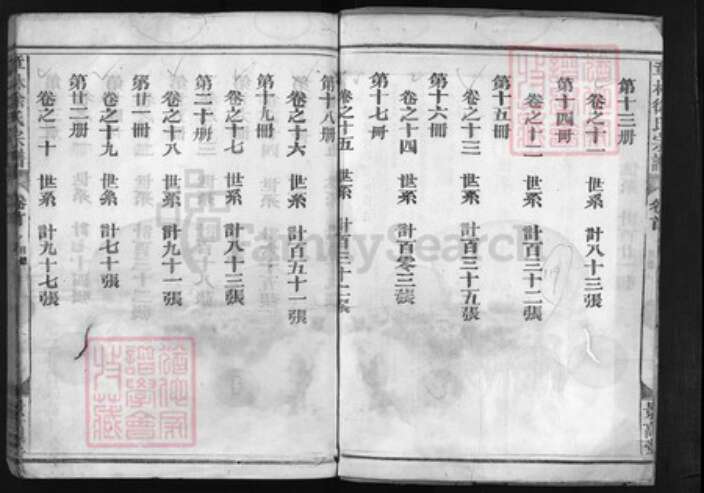 第十三册
卷之十一 世系 計八十三張
第十四冊
卷之十二 世系 計百三十二張
第十五冊
卷之十三 世系 計百三十五張
第十六冊
卷之十四 世系 計百零三張
第十七冊
卷之十五 世系 計百三十二張
第十八册
卷之十六 世系 計百五十一張
第十九冊
卷之十七 世系 計八十三張
第二十册
卷之十八 世系 計九十一張
第廿一冊
卷之十九 世系 計七十張
第廿二册
卷之二十 世系 計九十七張
徐氏宗譜 卷首
FamilySearch